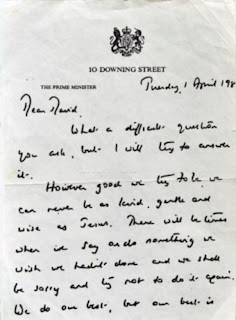 10 DOWNING STREET
THE PRIME MINISTER
Tuesday, 1 April 198
Dear David,
What a difficult question
you ask, but I will try to answer
it.
However good we try to be, we
can never be as kind, gentle and
wise as Jesus. There will be times
when we say or do something we
wish we hadn't done and we shall
be sorry and try not to do it again.
We do our best, but our best is